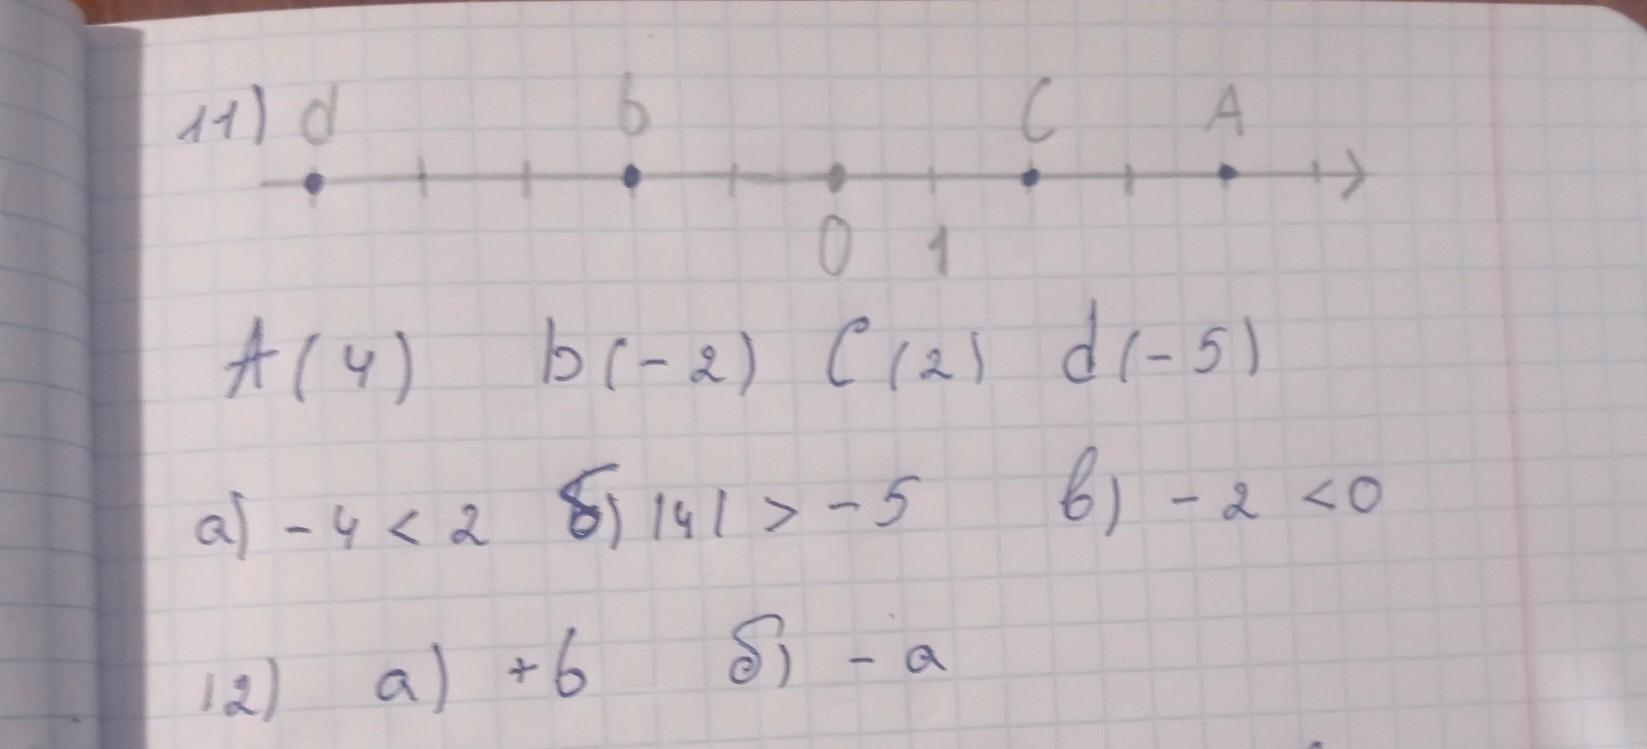 11) d b C A
0 1
A(4) b(-2) C(2) d(-5)
а) -4 < 2 б) |4| > -5 в) -2 < 0
12) а) +b б) -a